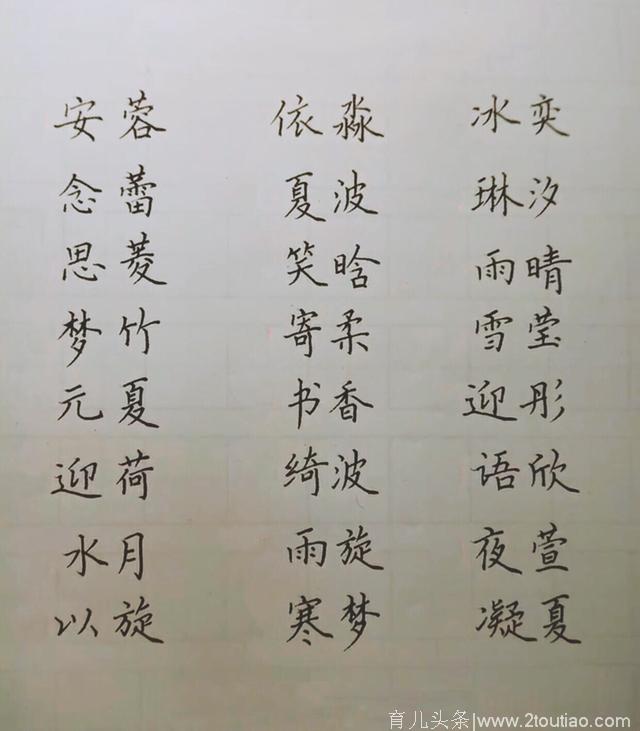 安蓉 依淼 冰奕
念蕾 夏波 琳汐
思菱 笑晗 雨晴
梦竹 寄柔 雪莹
元夏 书香 迎彤
迎荷 绮波 语欣
水月 雨旋 夜萱
以旋 寒梦 凝夏
育儿头条|www.2toutiao.com